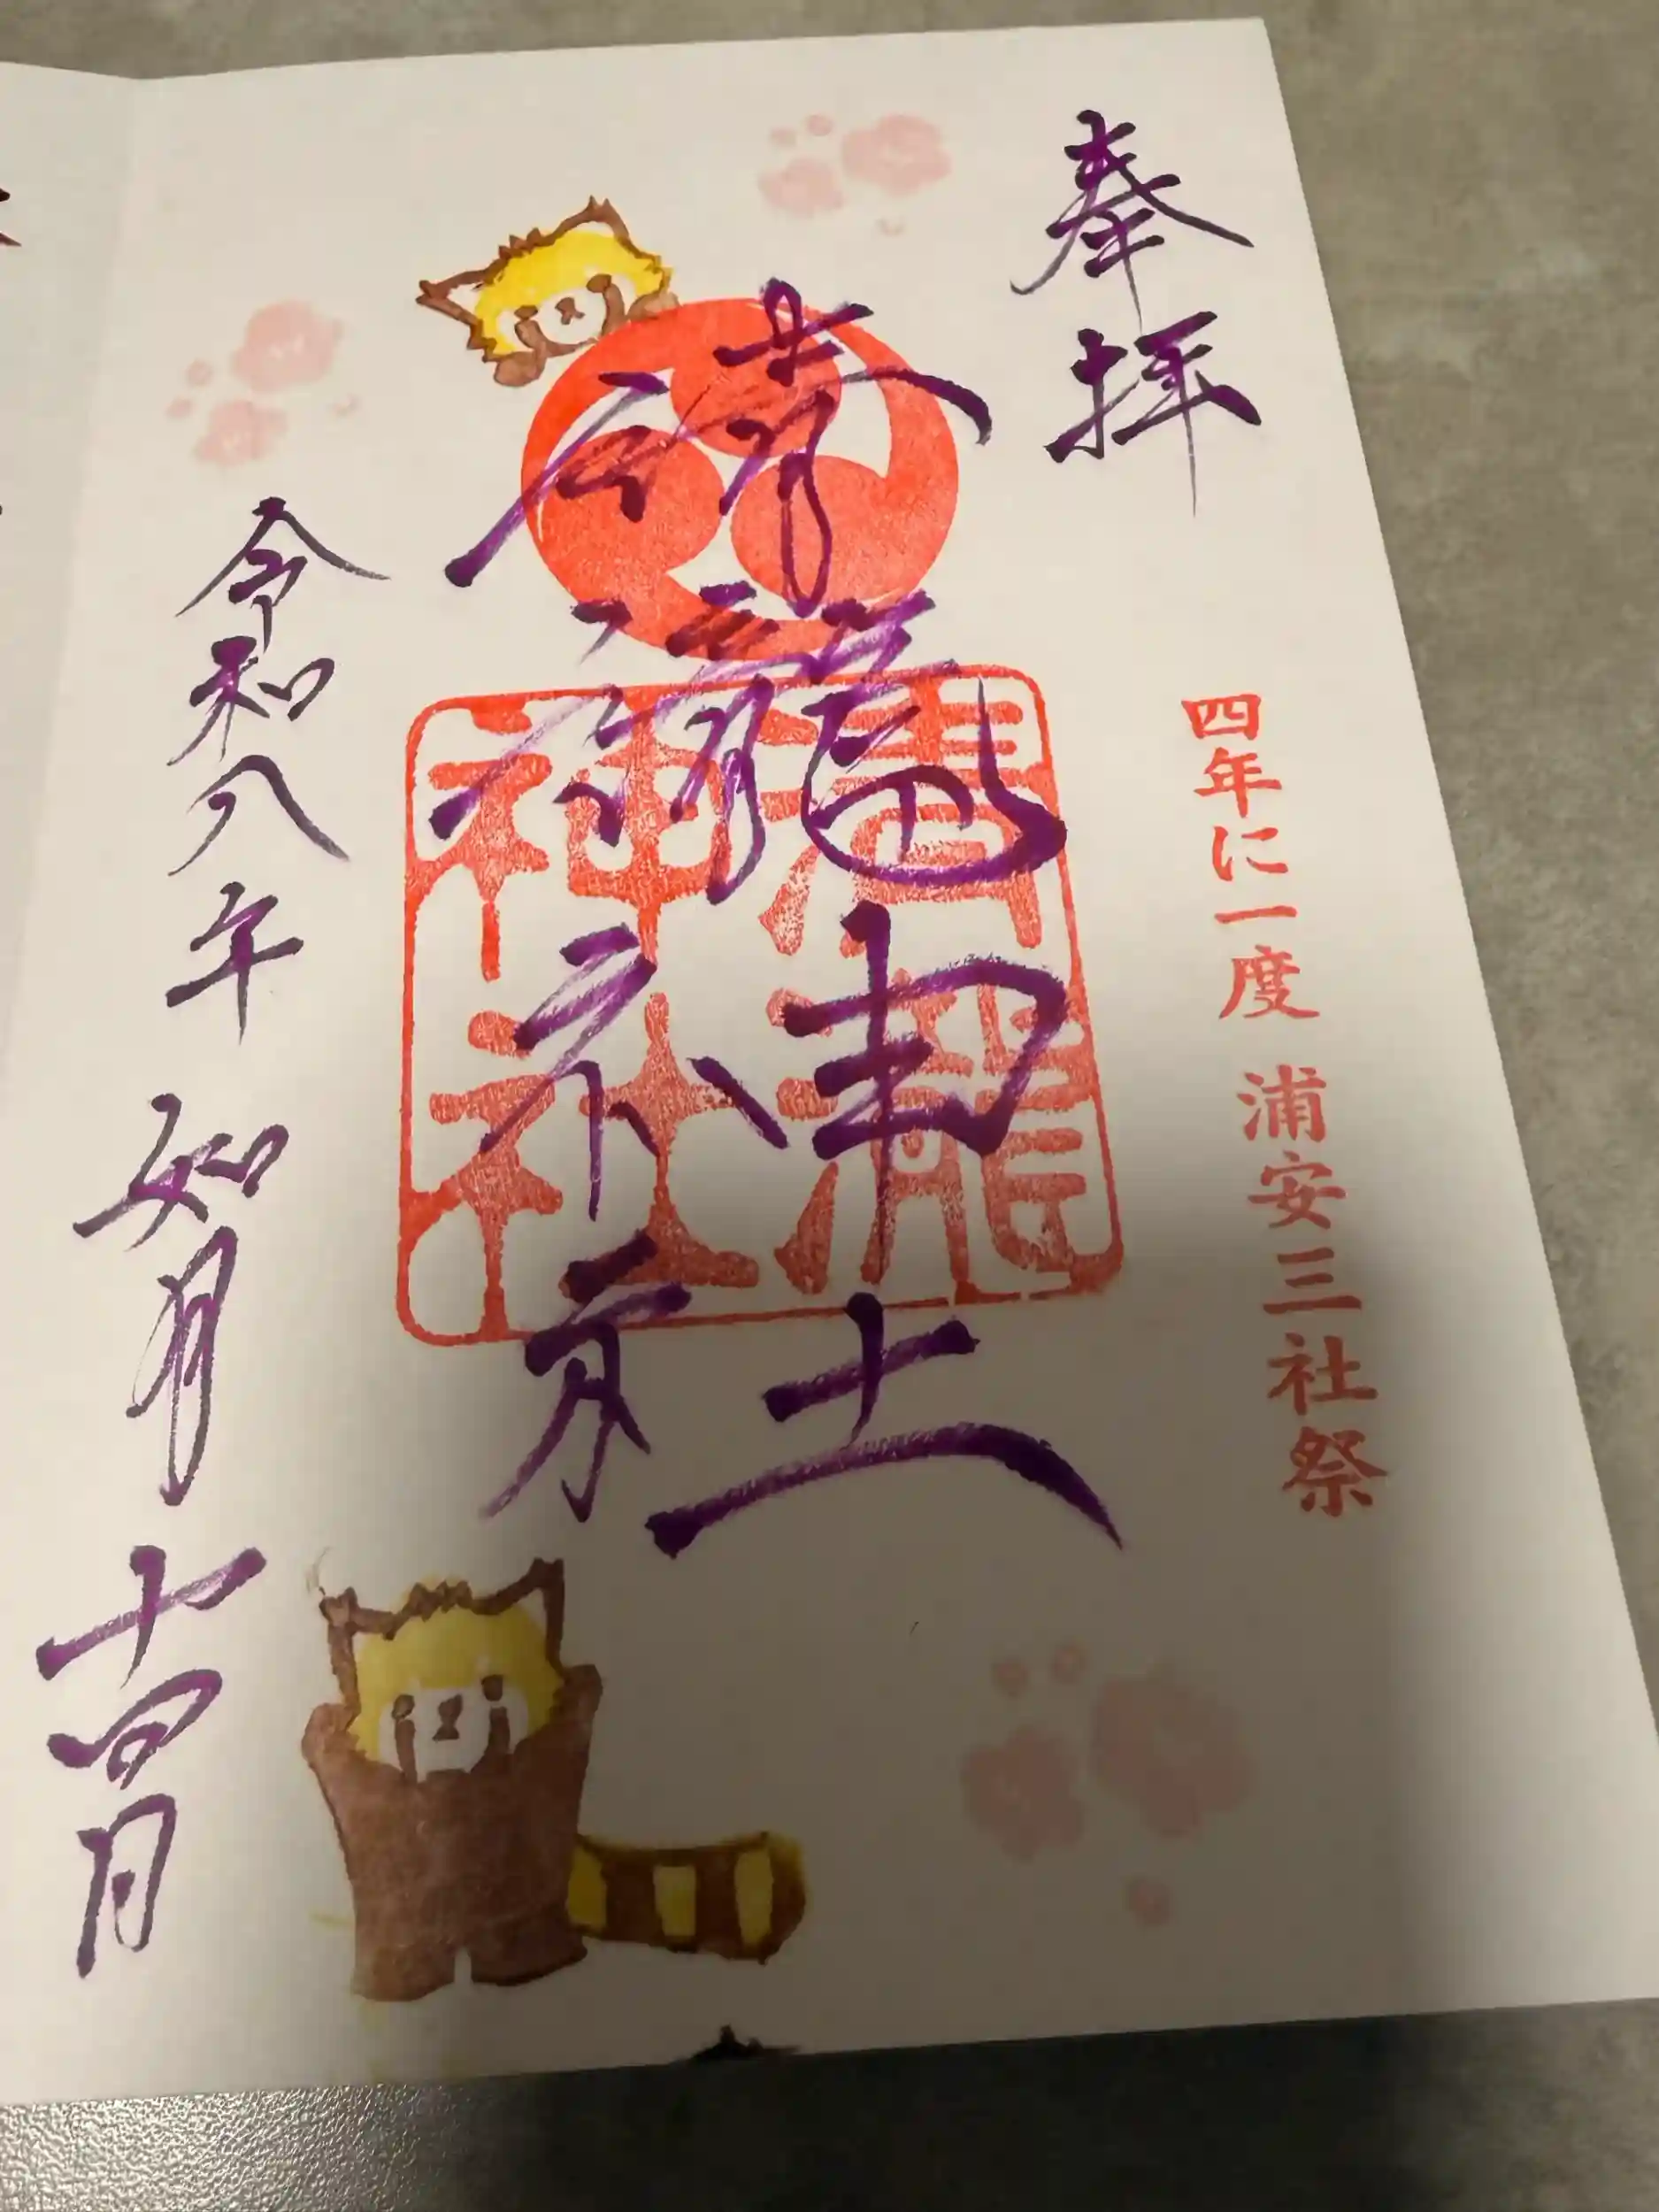 奉拝
四年に一度 浦安三社祭
清瀧神社
清瀧
神社
令和八年 如月